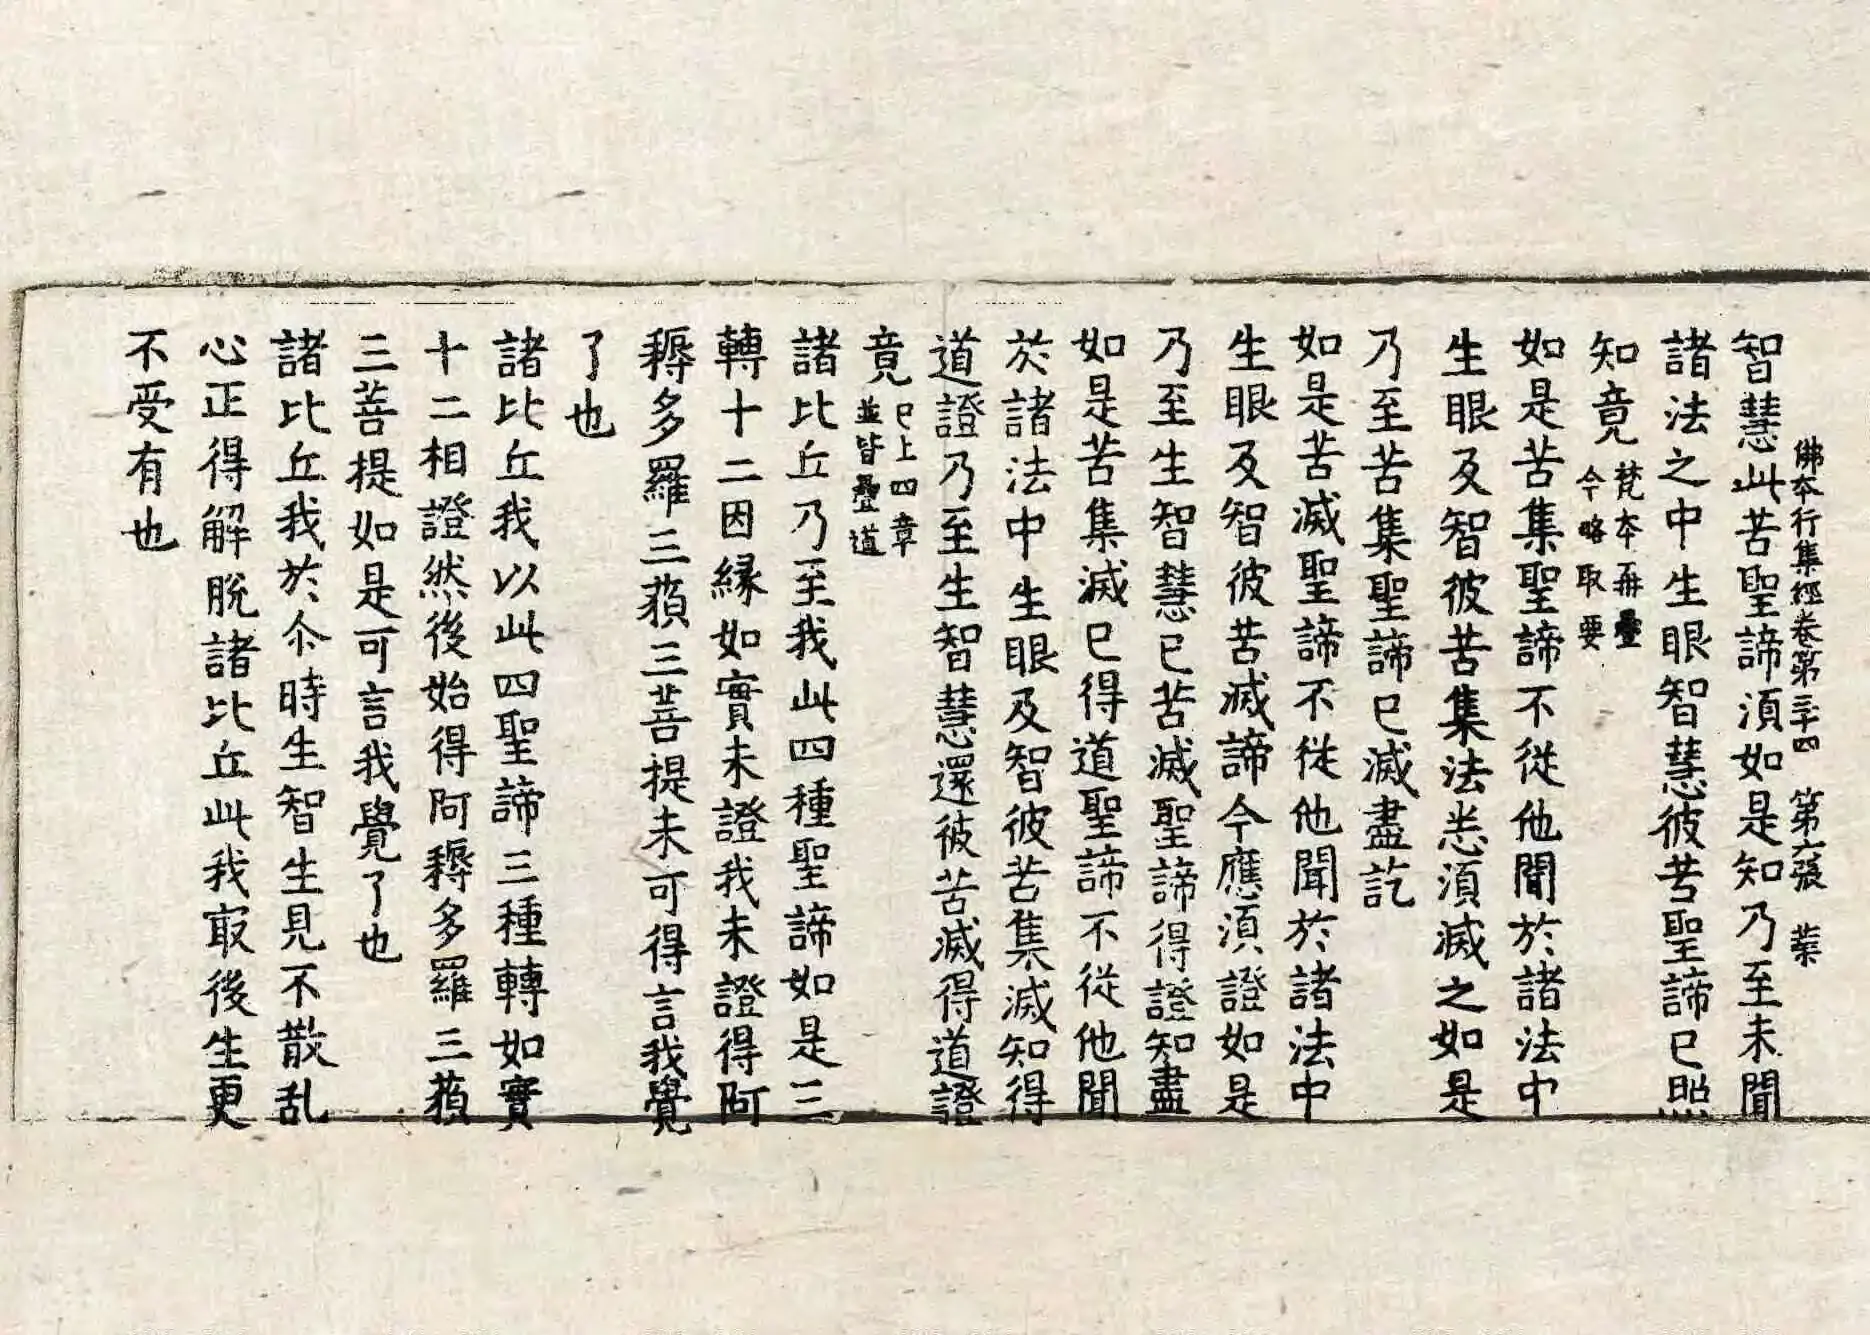 佛本行集經卷第三十四　第六張　業
智慧此苦聖諦須如是知乃至未聞
諸法之中生眼智慧彼苦聖諦已照
知竟梵本再疊今略取要
如是苦集聖諦不從他聞於諸法中
生眼及智彼苦集法悉須滅之如是
乃至苦集聖諦已滅盡訖
如是苦滅聖諦不從他聞於諸法中
生眼及智彼苦滅諦今應須證如是
乃至生智慧已苦滅聖諦得證知盡
如是苦集滅已得道聖諦不從他聞
於諸法中生眼及智彼苦集滅知得
道證乃至生智慧還彼苦滅得道證
竟已上四章並皆疊道
諸比丘乃至我此四種聖諦如是三
轉十二因緣如實未證我未證得阿
耨多羅三藐三菩提未可得言我覺
了也
諸比丘我以此四聖諦三種轉如實
十二相證然後始得阿耨多羅三藐
三菩提如是可言我覺了也
諸比丘我於尒時生智生見不散乱
心正得解脫諸比丘此我取後生更
不受有也